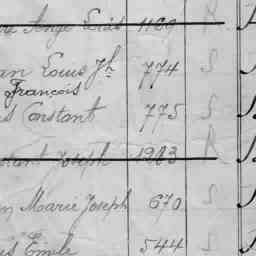 Ange Louis 1109 R
an Louis Jh 774 S
François
s Constant 775 S
Joseph 1983 R
n Marie Joseph 670 S
s Emile 544 S